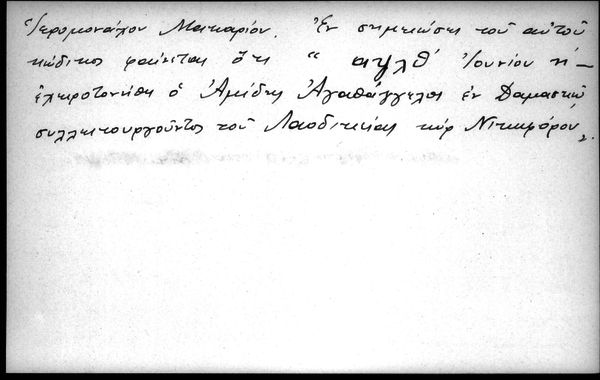 Ἱερομονάχου Μακαρίου. Ἐν σημειώσει τοῦ αὐτοῦ
κώδικος φαίνεται ὅτι " αψλθ´ Ἰουνίου
ἐχειροτονήθη ὁ Ἀμίδης Ἀγαθάγγελος ἐν Δαμασκῷ
συλλειτουργοῦντος τοῦ Λαοδικείας κὺρ Νικηφόρου".